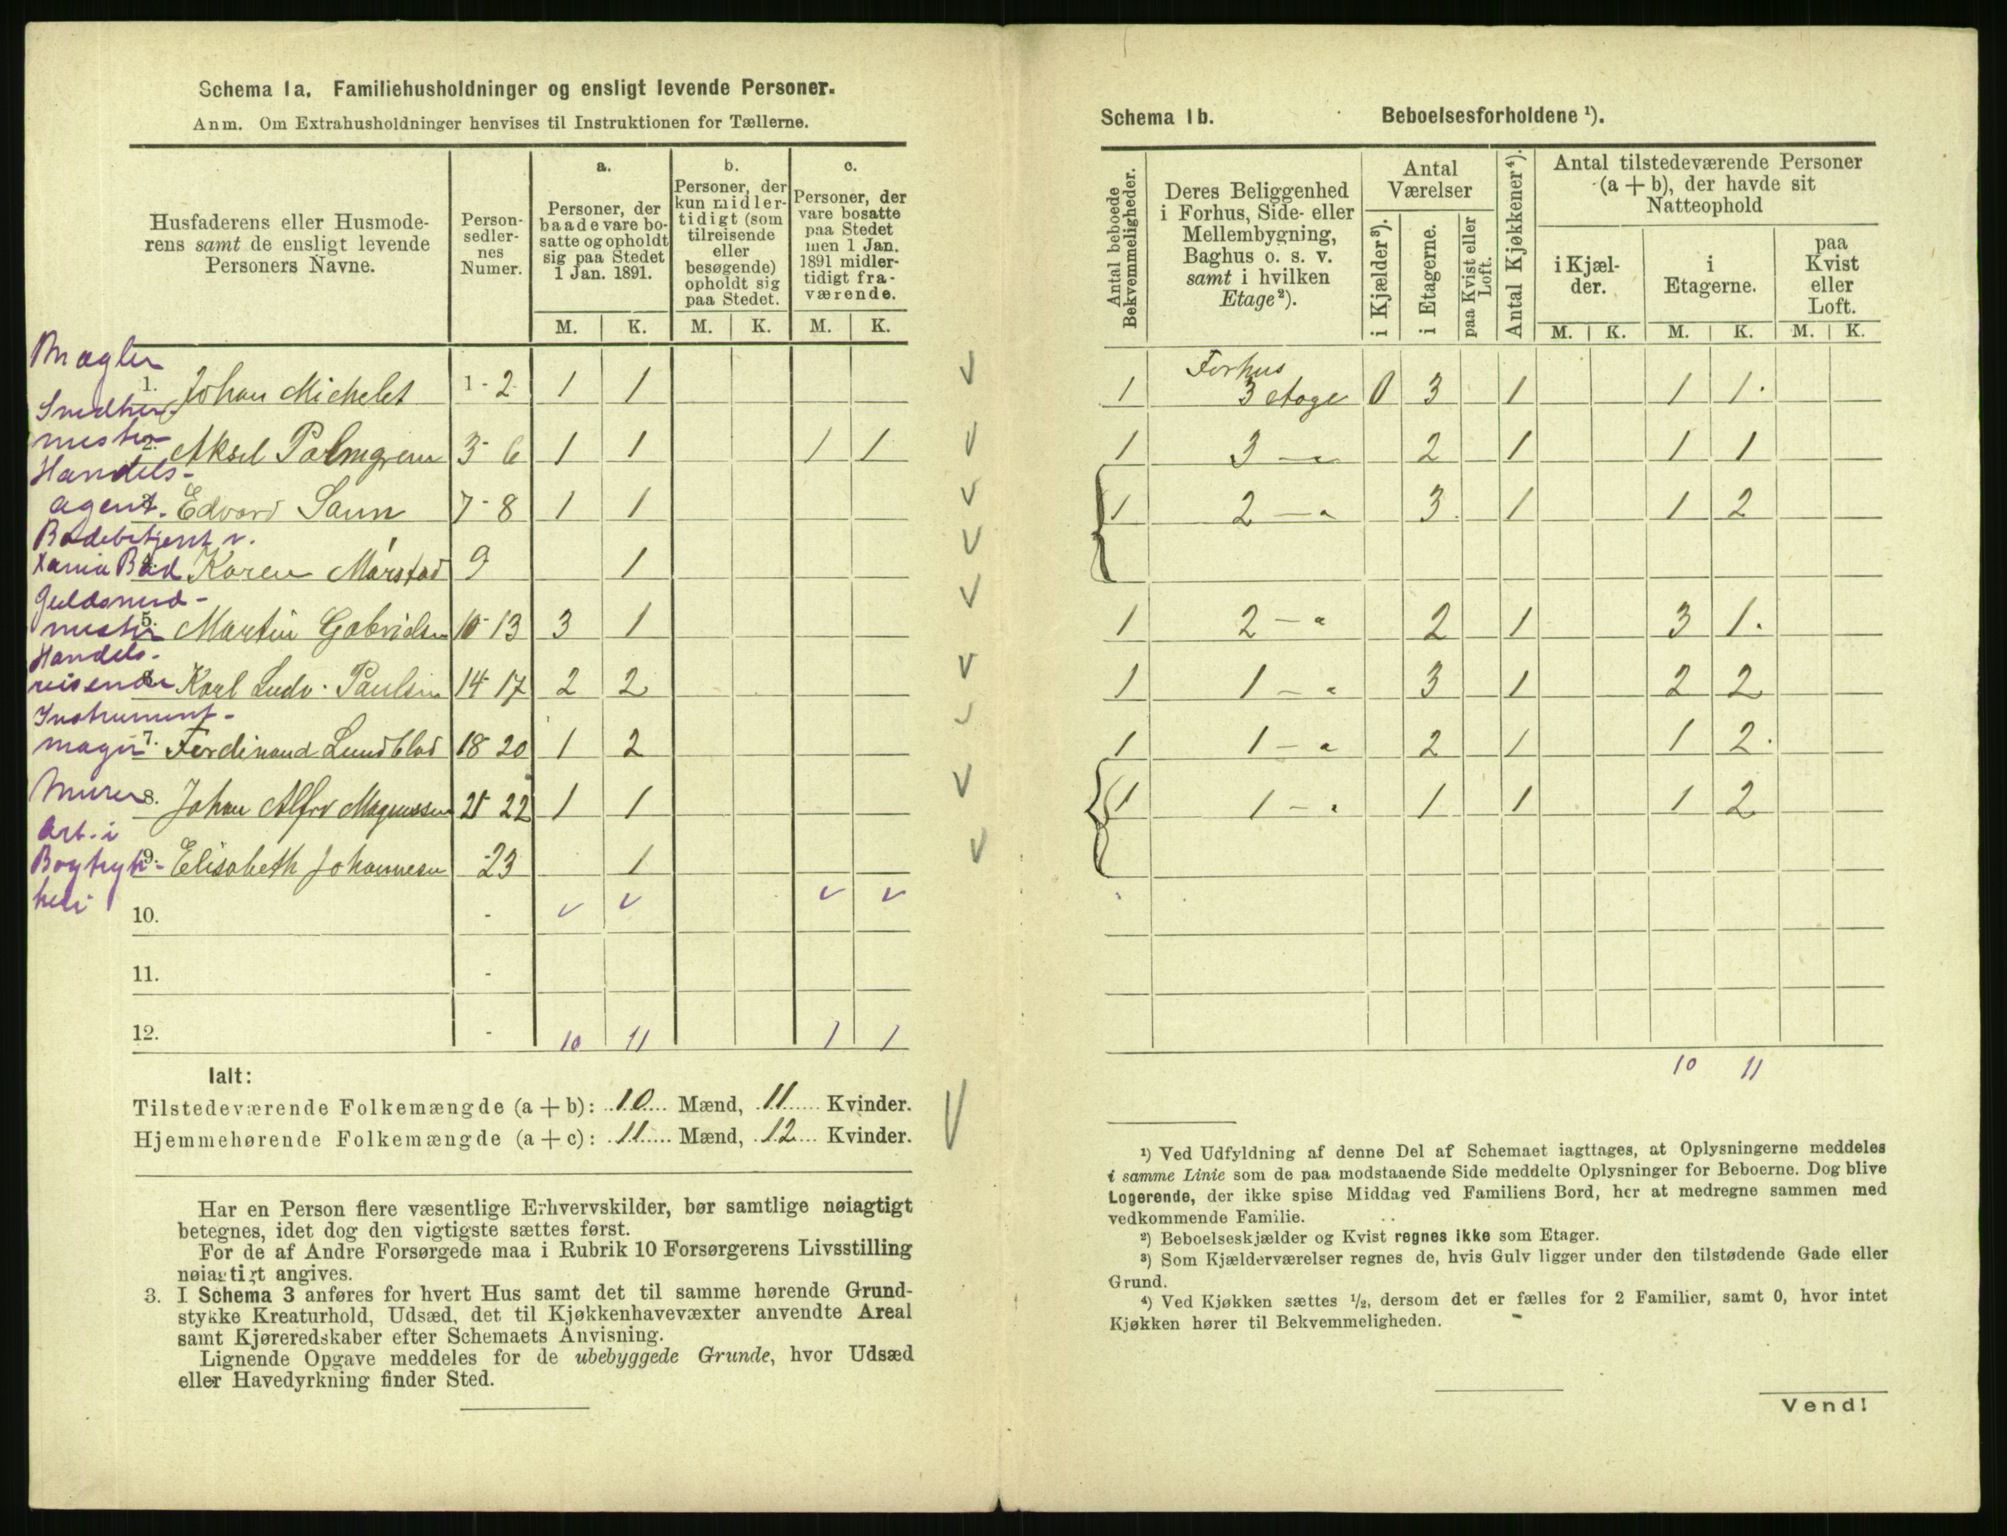 Schema 1a. Familiehusholdninger og ensligt levende Personer.
Anm. Om Extrahusholdninger henvises til Instruktionen for Tællerne.
Husfaderens eller Husmode-
rens samt de ensligt levende
Personers Navne.
Person-
sedler-
nes
Numer.
a.
Personer, der
baade vare bo-
satte og opholdt
sig paa Stedet
1 Jan. 1891.
b.
Personer, der
kun midler-
tidigt (som
tilreisende
eller
besøgende)
opholdt sig
paa Stedet.
c.
Personer, der
vare bosatte
paa Stedet
men 1 Jan.
1891 midler-
tidigt fra-
værende.
M. K. M. K. M. K.
Mægler
1. Johan Michelet 1 - 2 1 1
mester 2. Aksel Palmgren 3 - 6 1 1 1 1
Handels-
agent. Edvard Sann 7 - 8 1 1
Badebetjent v.
Xania Bad Karen Mørstad 9 1
Guldsmed-
mester 5. Martin Gabrielsen 10 - 13 3 1
Handels-
reisende Karl Ludv. Paulsen 14 - 17 2 2
Instrument-
mager 7. Ferdinand Lundblad 18 - 20 1 2
Murer 8. Johan Alfrd Magnussen 21 - 22 1 1
Arb. i
Bogtryk- 9. Elisabeth Johannesen - 23 1
keri
10. -
11. -
12. - 10 11 1 1
Ialt:
Tilstedeværende Folkemængde (a + b): 10 Mænd, 11 Kvinder.
Hjemmehørende Folkemængde (a + c): 11 Mænd, 12 Kvinder.
Har en Person flere væsentlige Erhvervskilder, bør samtlige nøiagtigt
betegnes, idet dog den vigtigste sættes først.
For de af Andre Forsørgede maa i Rubrik 10 Forsørgerens Livsstilling
nøiagtigt angives.
3. I Schema 3 anføres for hvert Hus samt det til samme hørende Grund-
stykke Kreaturhold, Udsæd, det til Kjøkkenhavevæxter anvendte Areal
samt Kjøreredskaber efter Schemaets Anvisning.
Lignende Opgave meddeles for de ubebyggede Grunde, hvor Udsæd
eller Havedyrkning finder Sted.
Schema 1b. Beboelsesforholdene ¹).
Antal beboede
Bekvemmeligheder.
Deres Beliggenhed
i Forhus, Side- eller
Mellembygning,
Baghus o. s. v.
samt i hvilken
Etage²).
Antal
Værelser
i Kjælder³).
i Etagerne.
paa Kvist eller
Loft.
Antal Kjøkkener⁴).
Antal tilstedeværende Personer
(a + b), der havde sit
Natteophold
i Kjæl-
der.
i
Etagerne.
paa
Kvist
eller
Loft.
M. K. M. K. M. K.
Forhus
1 3 etage 0 3 1 1 1
1 3 — " 2 1 1 1
1 2 — " 3 1 1 2
1 2 — " 2 1 3 1
1 1 — " 3 1 2 2
1 1 — " 2 1 1 2
1 1 — " 1 1 1 2
10 11
¹) Ved Udfyldning af denne Del af Schemaet iagttages, at Oplysningerne meddeles
i samme Linie som de paa modstaaende Side meddelte Oplysninger for Beboerne. Dog blive
Logerende, der ikke spise Middag ved Familiens Bord, her at medregne sammen med
vedkommende Familie.
²) Beboelseskjælder og Kvist regnes ikke som Etager.
³) Som Kjælderværelser regnes de, hvis Gulv ligger under den tilstødende Gade eller
Grund.
⁴) Ved Kjøkken sættes ½, dersom det er fælles for 2 Familier, samt 0, hvor intet
Kjøkken hører til Bekvemmeligheden.
Vend!